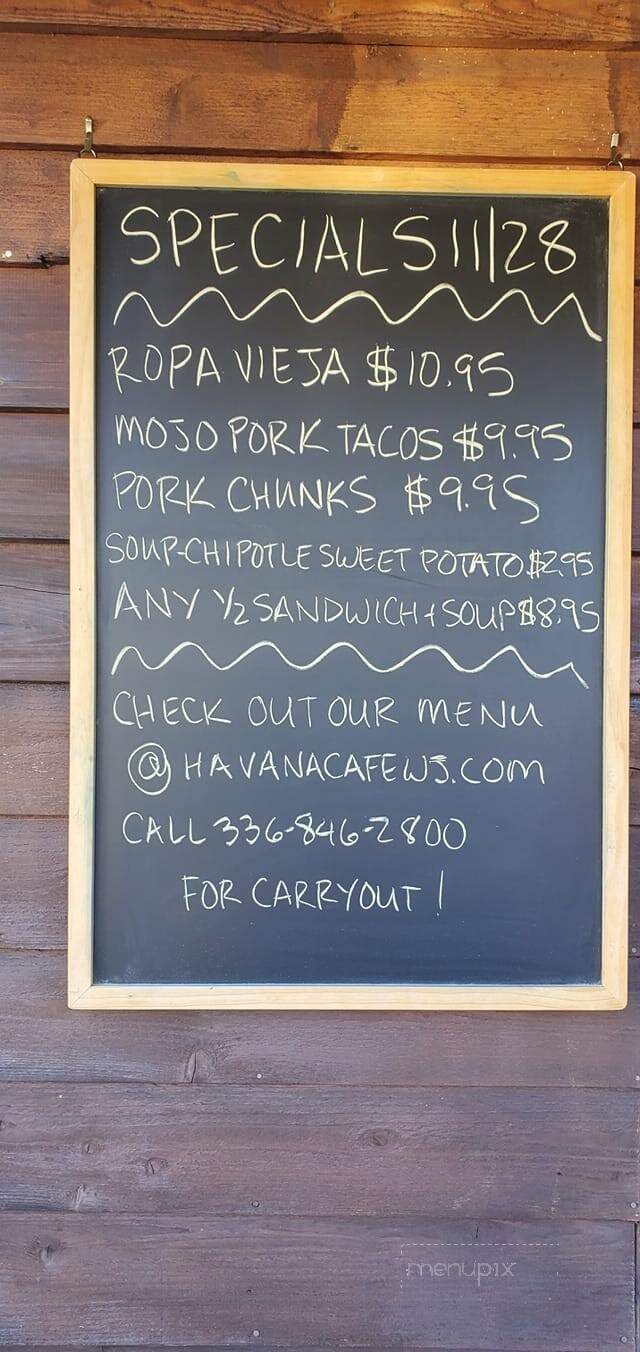 SPECIALS 11/28
ROPA VIEJA $10.95
MOJO PORK TACOS $9.95
PORK CHUNKS $9.95
SOUP-CHIPOTLE SWEET POTATO $2.95
ANY 1/2 SANDWICH + SOUP $8.95
CHECK OUT OUR MENU
@ HAVANACAFEWS.COM
CALL 336-846-2800
FOR CARRYOUT!
menupix